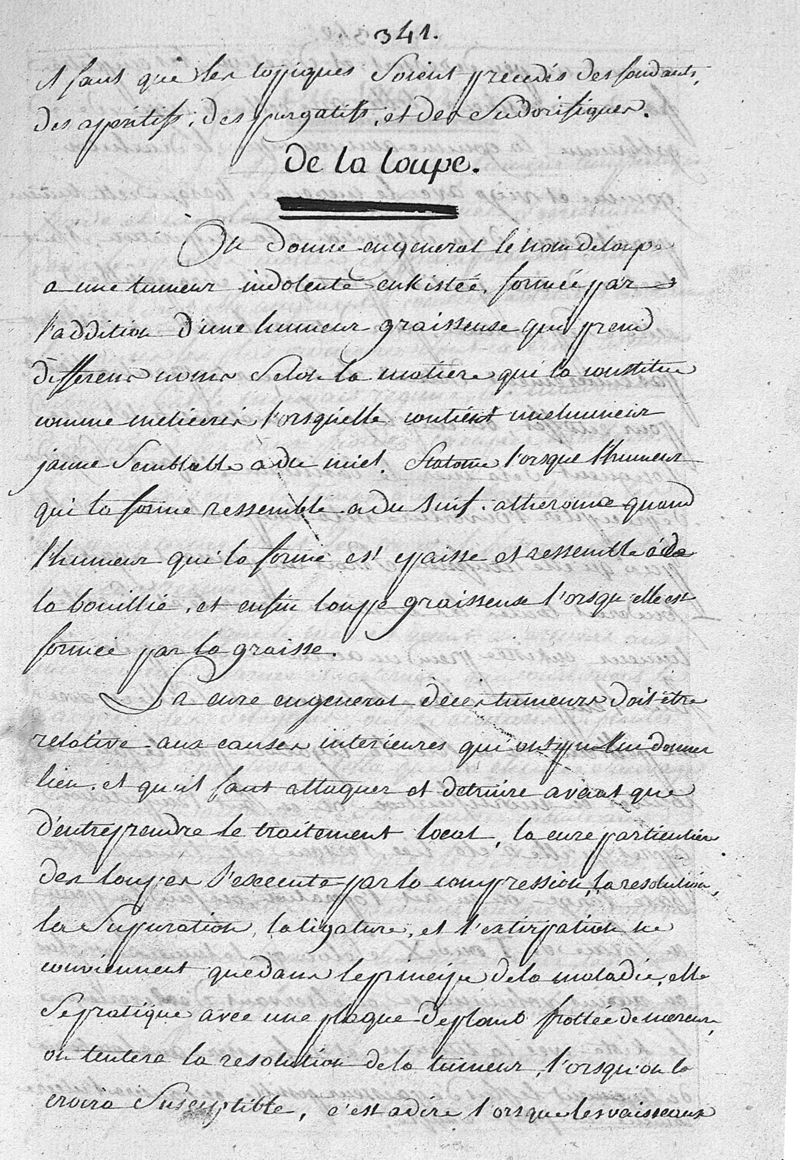 341.
il faut que les topiques soient precedés des fondants,
des aperitifs, des purgatifs, et des Sudorifiques.
de la loupe.
On donne engeneral le nom de loupe
a une tumeur indolente enkistée, formée par
l'addition d'une humeur graisseuse qui prend
differens noms Selon la matiere qui la constitue
comme meliceris l'orsqu'elle contient une humeur
jaune Semblable a du miel. Statome l'orsque l'humeur
qui la forme ressemble a du Suif. atherome quand
l'humeur qui la forme est epaisse et ressemble à de
la bouillie, et enfin loupe graisseuse l'orsqu'elle est
formée par la graisse.
La cure engeneral de ces tumeurs doit être
relative aux causes interieures qui ont pu lui donner
lieu. et qu'il faut attaquer et detruire avant que
d'entreprendre le traitement local, la cure particuliere
des loupes s'execute par la compression, la resolution,
la Supuration, la ligature, et l'extirpation ne
conviennent que dans le principe de la maladie, elle
Se pratique avec une plaque de plomb frottée de mercure,
on tentera la resolution de la tumeur, l'orsqu'on la
croira Susceptible, c'est a dire l'orsque les vaisseaux